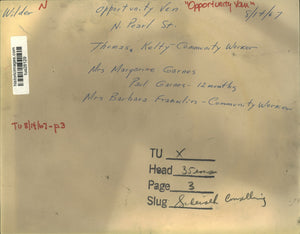 Wilder N Opportunity Van "Opportunity Van" 8/14/67
N. Pearl St.
Theresa Kelty - Community Worker
Mrs Margarine Garnes
Paul Garnes - 12 months
Mrs Barbara Franklin - Community Worker
TU 8/14/67 - p3
TU X
Head 35 ems
Page 3
Slug